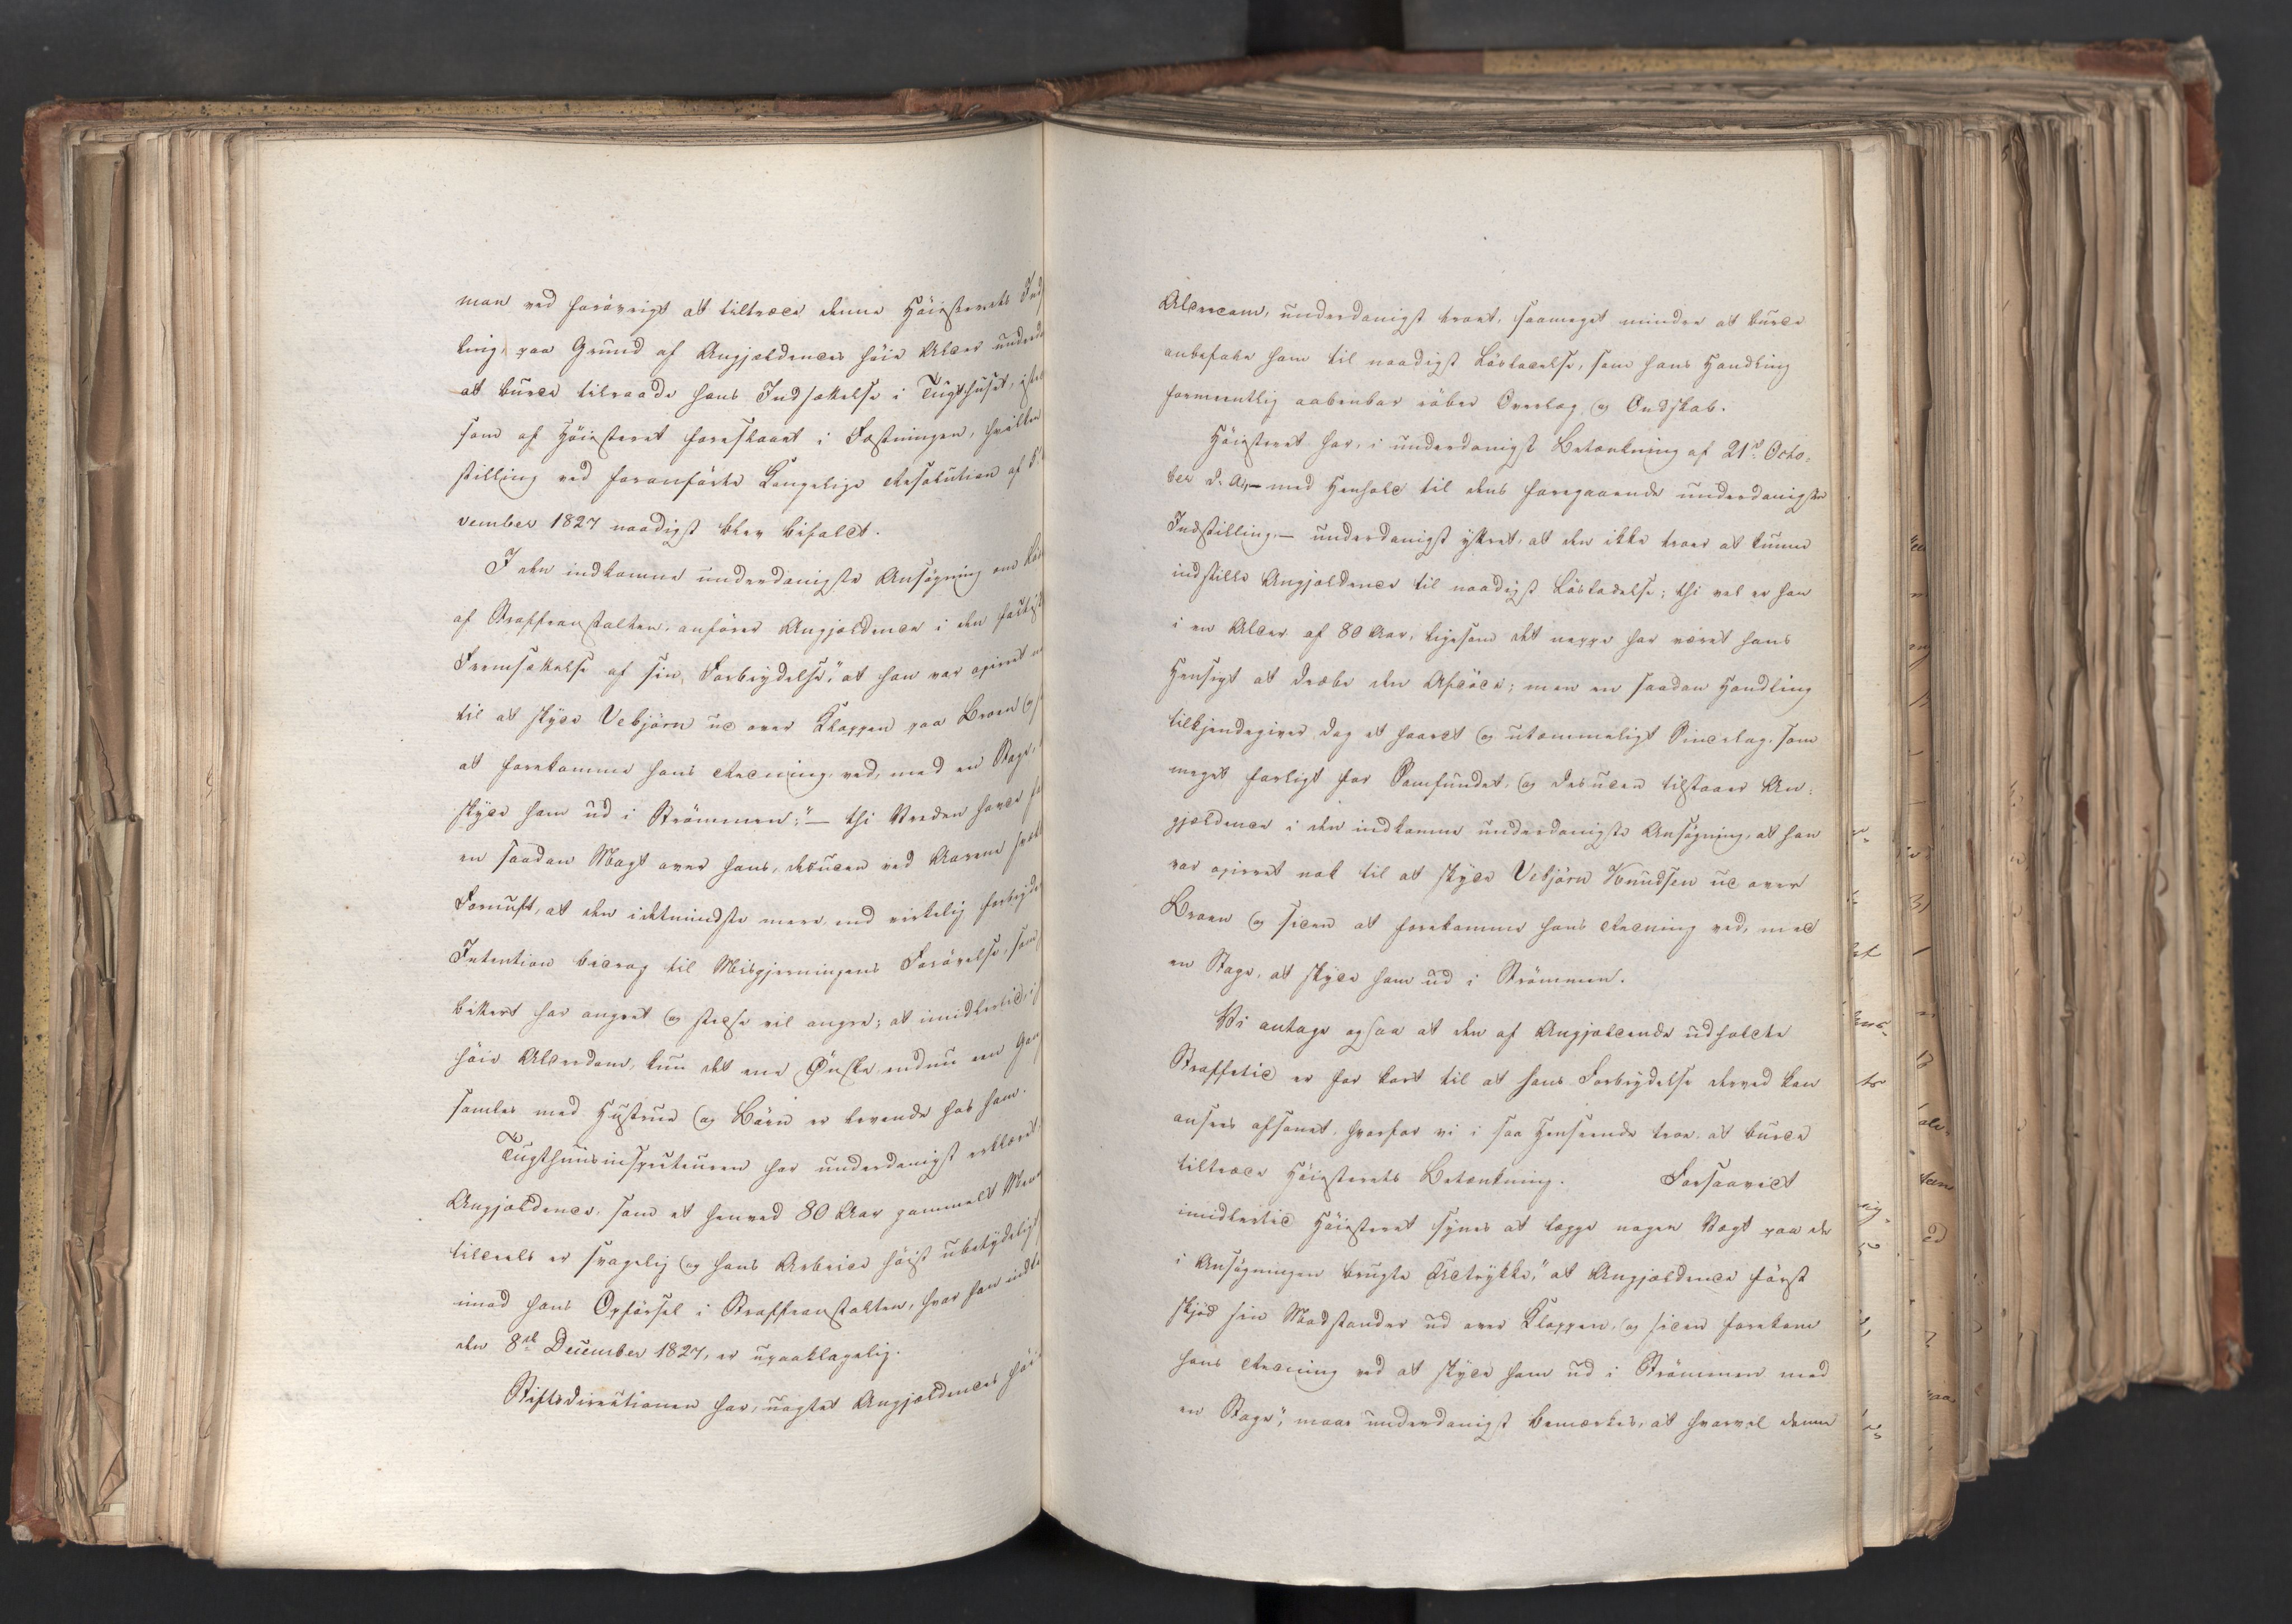 man ved forövrigt at tiltræde denne Höiesterets Ind
ling, paa Grund af Angjældendes höie Alder underd
at burde tilraade hans Indsættelse i Tugthuset, iste
som af Höiesteret foreslaaet i Fæstningen, hvilken
stilling ved foranförte Kongelige Resolution af
vember 1827 naadigst blev bifaldt.
I den indkomne underdanigste Ansögning om Lös
af Straffeanstalten, anförer Angjældende i den
Fremsættelse af sin Forbrydelse, "at han var opirret
til at skyde Vebjörn ud over Kloppen paa Broen og
at forekomme hans Redning, ved, med en Stage,
skyde ham ud i Strömmen;" — thi Vreden havde
en saadan Magt over hans, desuden ved Aarene
Fornuft, at den idetmindste mere end virkelig forbryde
Intention bidrog til Misgjerningens Forövelse, som
bittert har angret og stedse vil angre; at imidlertid, i
höie Alderdom, kun det ene Önske endnu een Gang
samles med Hustrue og Börn er levende hos ham.
Tugthuusinspecteuren har underdanigst erklæret,
Angjældende, som et henved 80 Aar gammelt Men
tildeels er svagelig og hans Arbeide höist ubetydeligt
imod hans Opförsel i Straffeanstalten, hvor han indk
den 8de December 1827, er upaaklagelig.
Stiftsdirectionen har, uagtet Angjældendes höi
Alderdom, underdanigst troet, saameget mindre at burde
anbefale ham til naadigst Lösladelse, som hans Handling
formeentlig aabenbar röber Overlæg og Ondskab.
Höiesteret har, i underdanigst Betænkning af 21de Octo-
ber d. A., — med Henhold til dens foregaaende underdanigste
Indstilling, — underdanigst yttret, at den ikke troer at kunne
indstille Angjældende til naadigst Lösladelse; thi vel er han
i en Alder af 80 Aar, ligesom det neppe har været hans
Hensigt at dræbe den Afdöde; men en saadan Handling
tilkjendegiver dog et haardt og utæmmeligt Sindelag, som
meget farligt for Samfundet, og desuden tilstaaer An-
gjældende i den indkomne underdanigste Ansögning, at han
var opirret nok til at skyde Vebjörn Knudsen ud over
Broen og siden at forekomme hans Redning ved, med
en Stage, at skyde ham ud i Strömmen.
Vi antage ogsaa at den af Angjældende udholdte
Straffetid er for kort til at hans Forbrydelse derved kan
ansees afsonet, hvorfor vi i saa Henseende troe at burde
tiltræde Höiesterets Betænkning. Forsaavidt
imidlertid Höiesteret synes at lægge nogen Vægt paa de
i Ansögningen brugte Udtrykke, "at Angjældende först
skjöd sin Modstander ud over Kloppen, og siden forekom
hans Redning ved at skyde ham ud i Strömmen med
en Stage", maae underdanigst bemærkes, at hvorvel denne